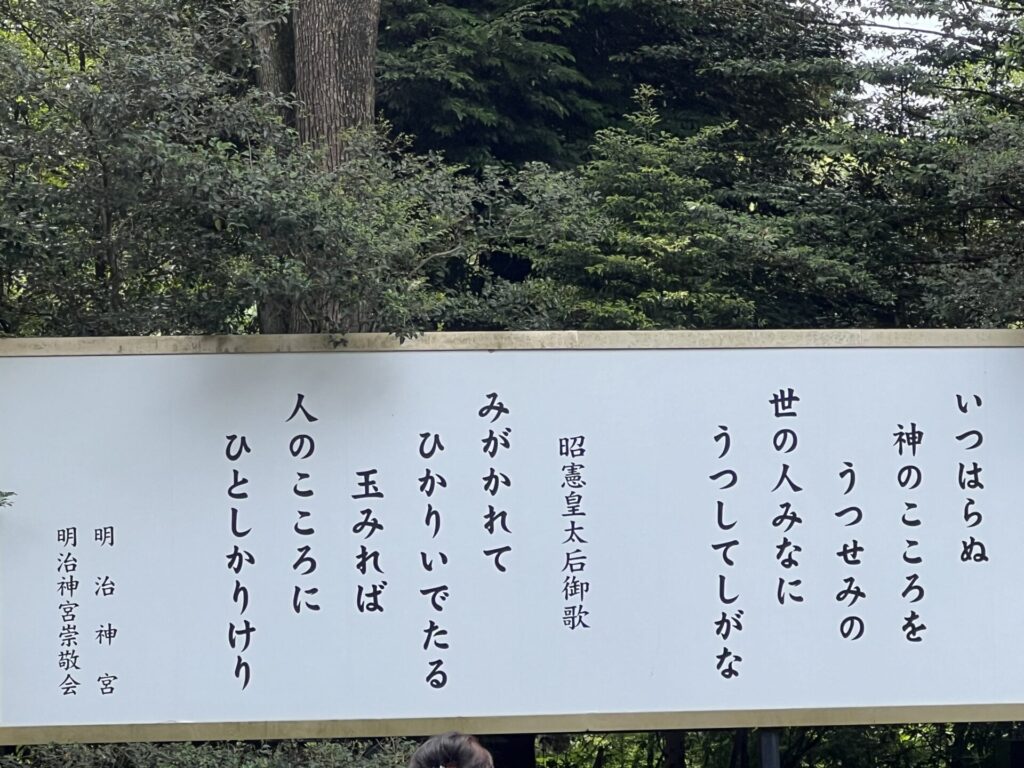 いつはらぬ
神のこころを
うつせみの
世の人みなに
うつしてしがな
昭憲皇太后御歌
みがかれて
ひかりいでたる
玉みれば
人のこころに
ひとしかりけり
明治神宮
明治神宮崇敬会